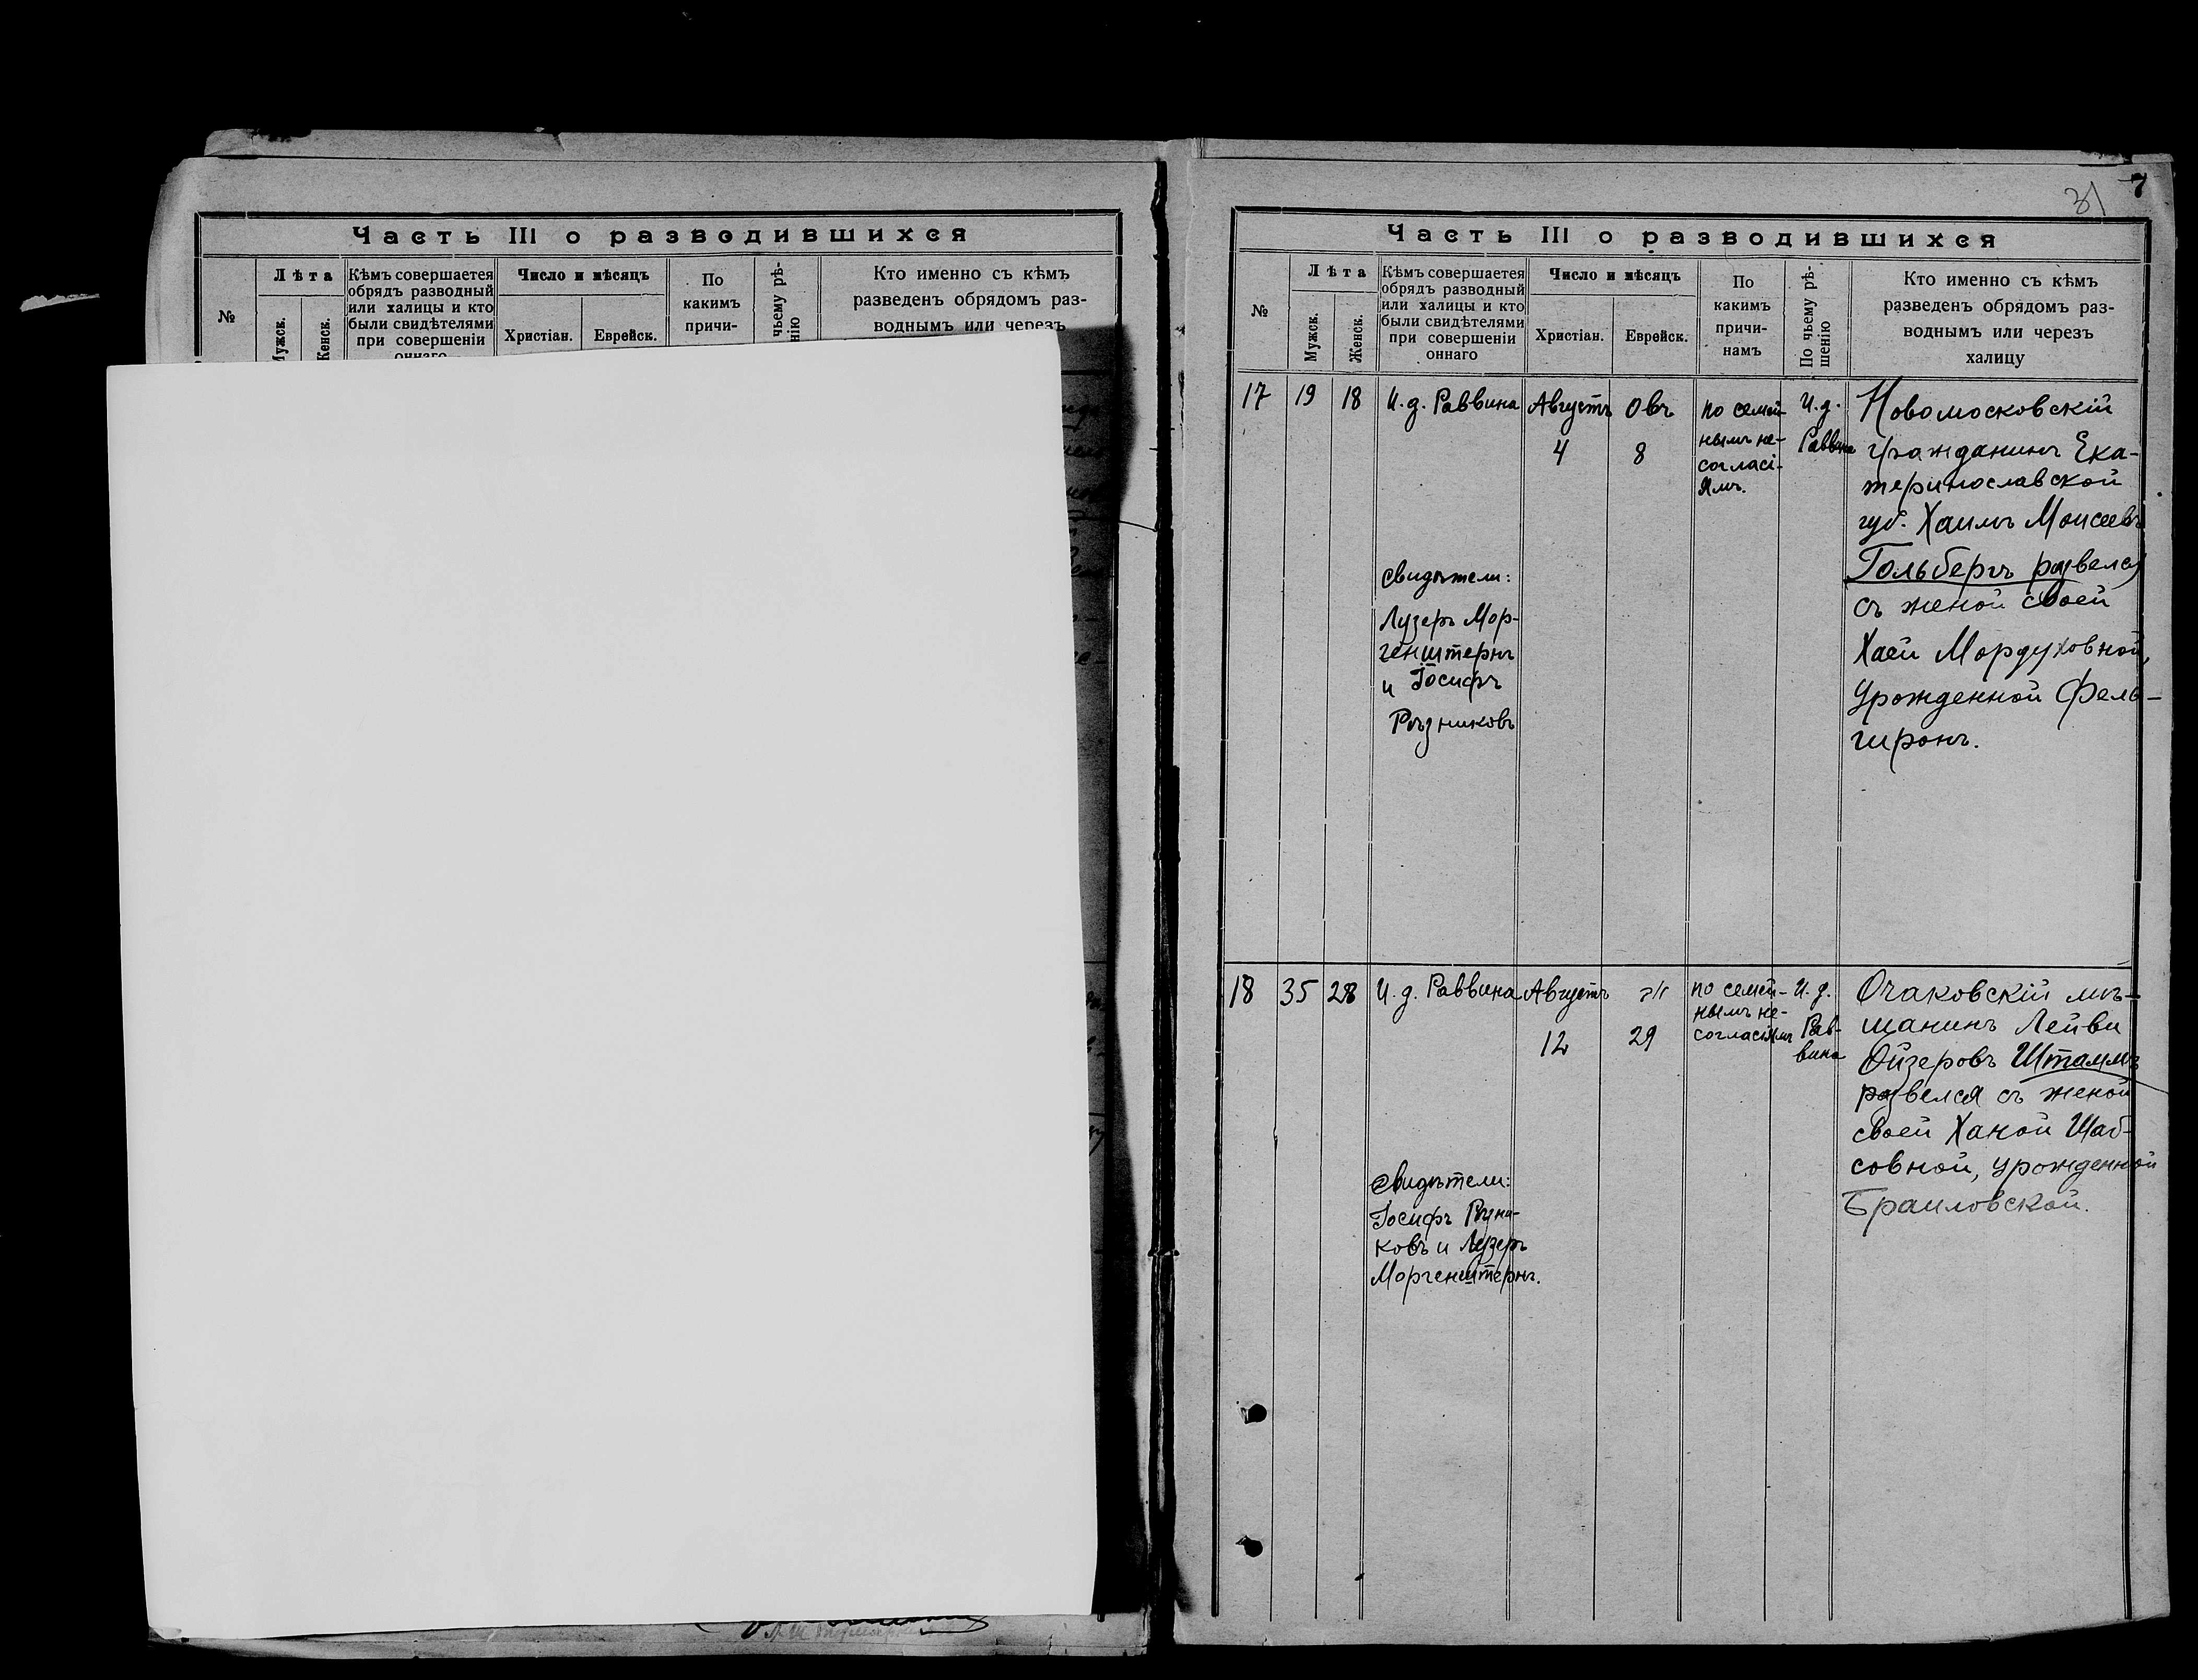 Часть III о разводившихся
№
Лѣта
Мужск.
Женск.
Кѣмъ совершается
обрядъ разводный
или халицы и кто
были свидѣтелями
при совершеніи
оннаго
Число и мѣсяцъ
Христіан.
Еврейск.
По
какимъ
причи-
чьему рѣ-
нію
Кто именно съ кѣмъ
разведенъ обрядомъ раз-
воднымъ или черезъ
31
7
Часть III о разводившихся
№
Лѣта
Мужск.
Женск.
Кѣмъ совершается
обрядъ разводный
или халицы и кто
были свидѣтелями
при совершеніи
оннаго
Число и мѣсяцъ
Христіан.
Еврейск.
По
какимъ
причи-
намъ
По чьему рѣ-
шенію
Кто именно съ кѣмъ
разведенъ обрядомъ раз-
воднымъ или черезъ
халицу
17
19
18
И. д. Раввина
Свидѣтели:
Лузеръ Мор-
генштернъ
и Іосифъ
Рѣзниковъ
Августъ
4
Овъ
8
по семей-
нымъ не-
согласі-
ямъ.
И. д.
Раввина
Новомосковскій
гражданинъ Ека-
теринославской
губ. Хаимъ Моисеевъ
Гольбергъ развелся
съ женой своей
Хаей Мордуховной,
урожденной Фель-
гиронъ.
18
35
28
И. д. Раввина
Свидѣтели:
Іосифъ Рѣзни-
ковъ и Лузеръ
Моргенштернъ.
Августъ
12
"
29
по семей-
нымъ не-
согласіямъ
И. д.
Рав-
вина
Очаковскій мѣ-
щанинъ Лейви
Ойзеровъ Штаммъ
развелся съ женой
своей Ханой Шаб-
совной, урожденной
Браиловской.